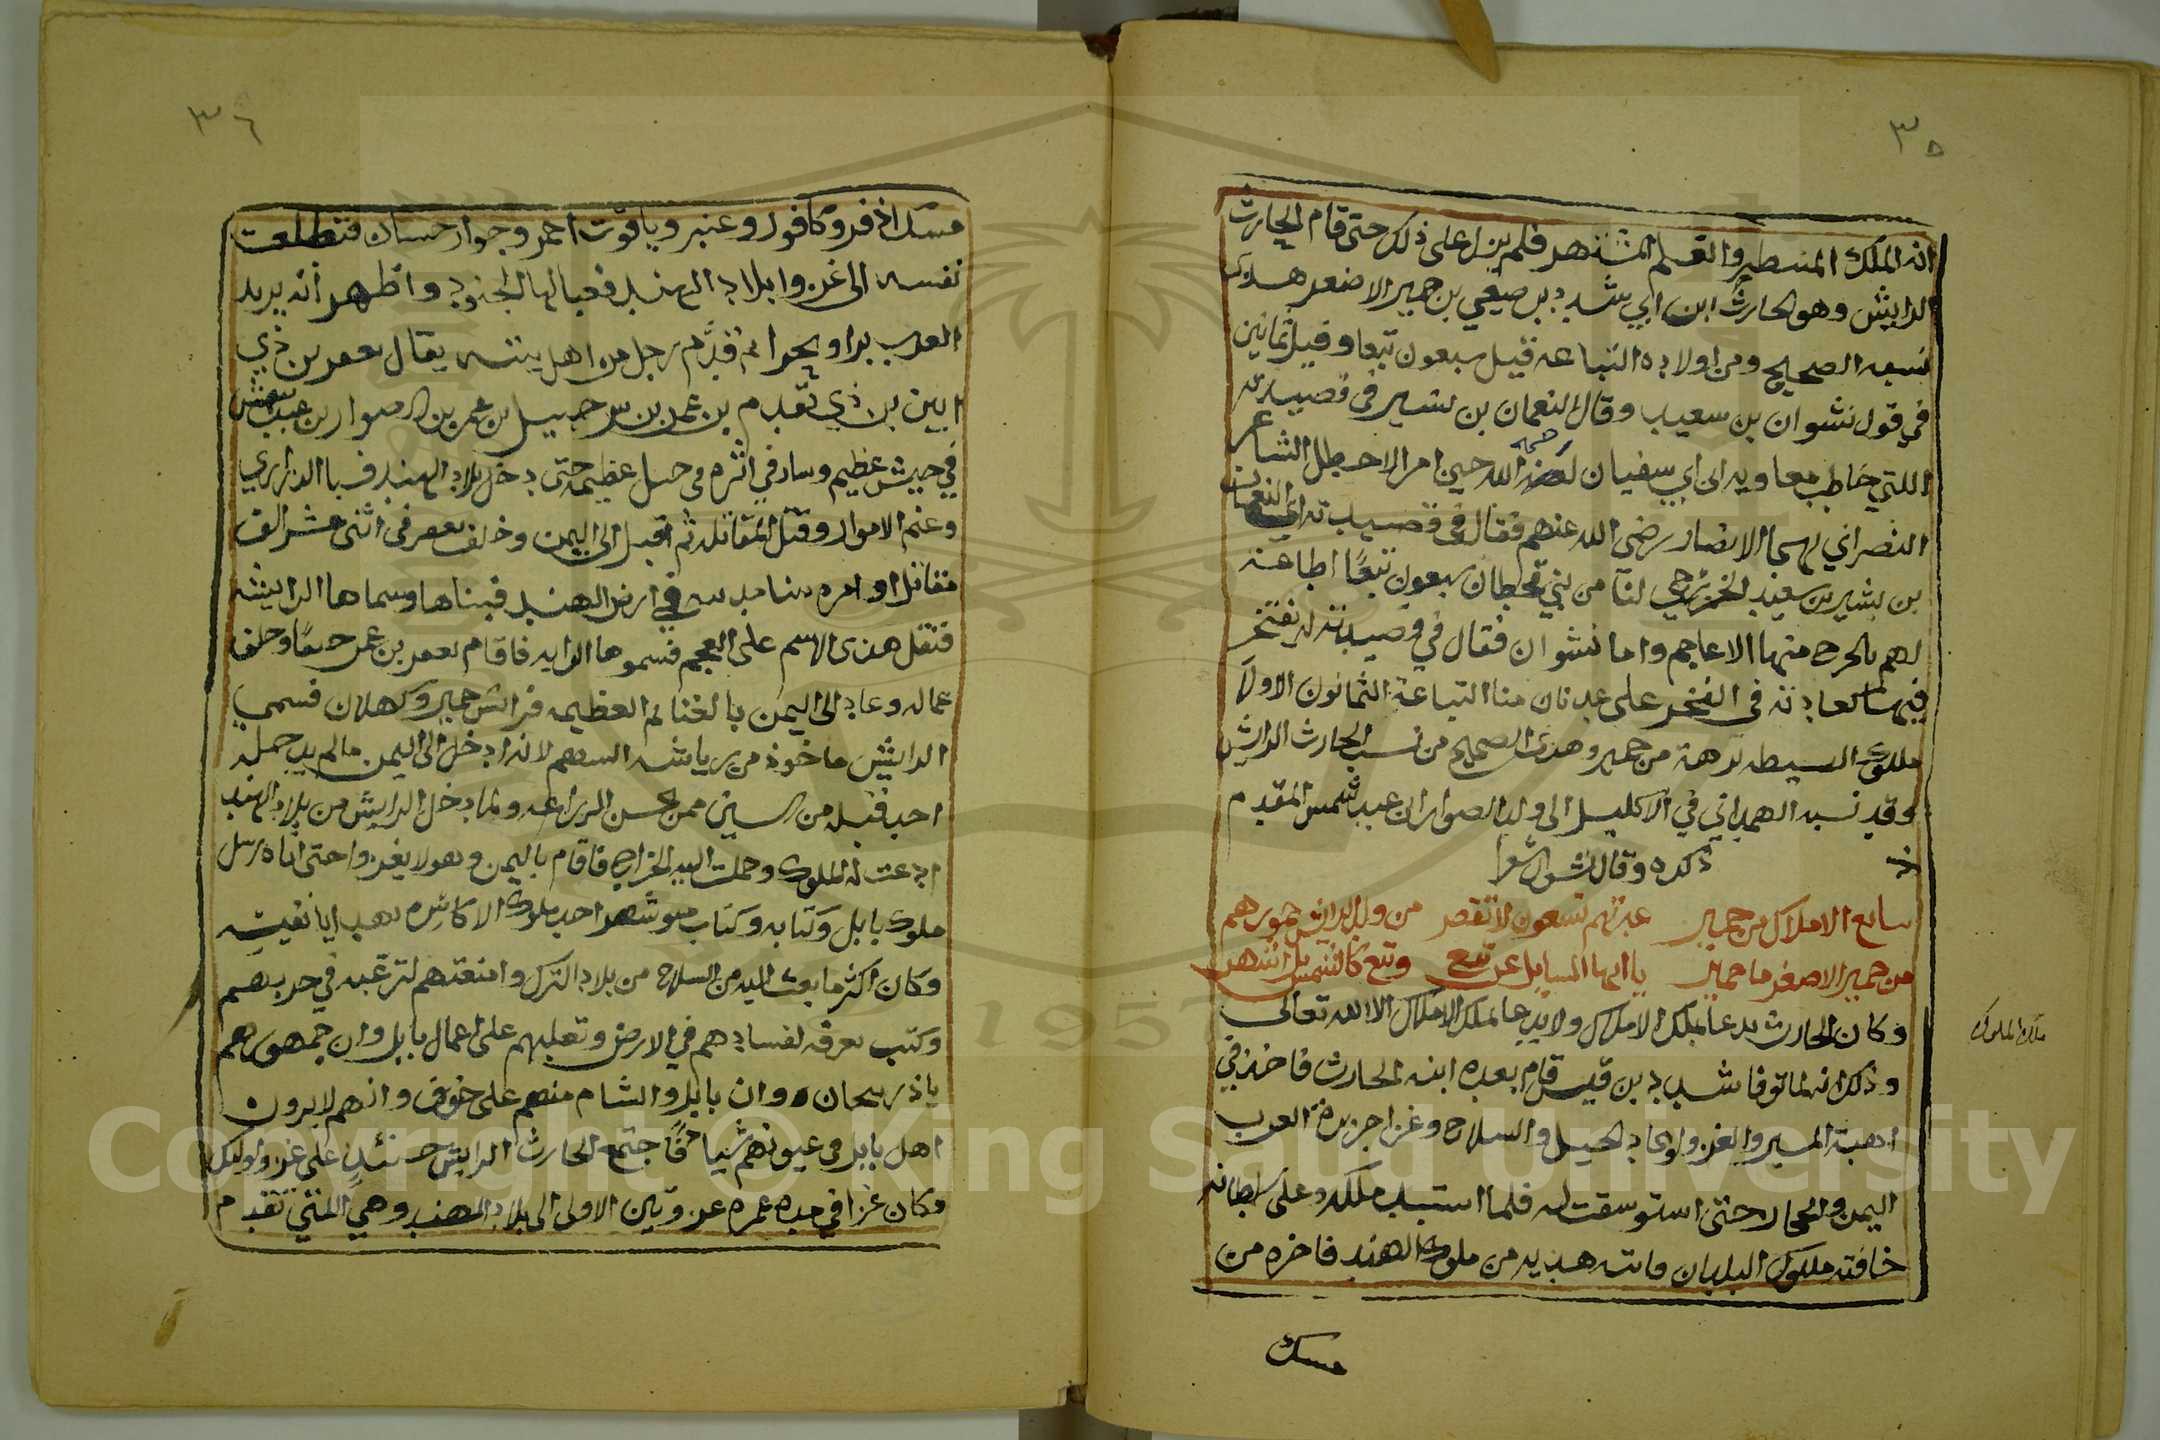 ٣٥
انه الملك المسطير والعلم المشتهر فلم يزل على ذلك حتى قام الحارث
الرايش وهو الحارث ابن ابي شدد بن صيفي بن حمير الاصغر هذا
نسبه الصحيح ومن اولاده التباعه قيل سبعون تبعا وقيل ثمانين
في قول نشوان بن سعيد وقال النعمان بن بشير في قصيدته
اللتي خاطب معاويه ابن ابي سفيان الله حين امر الاخطل الشاعر
النصراني بهجا الانصار رضي الله عنهم فقال في قصيدته النعمان
بن بشير بن سعيد الخزرجي لنا من بني قحطان سبعون تبعًا اطاعة
لهم بالخرج منها الاعاجم واما نشوان فقال في قصيدته يفتخر
فيها كعادته في الفخر على عدنان منا التباعة الثمانون الاولا
ملكوا البسيطه من حمير وهذا الصحيح من نسب الحارث الرايش
وقد نسبه الهمداني في الاكليل الى ولد الصوار ابن عبد شمس المقدم
ذكره وقال نشوان شعرا
الاملاك من حمير عدتهم تسعون لا تقصر من ولد الرايش جمهورهم
من حمير الاصغر ما حمير يا ايها السايل عن تبع وتبع كالشمس بل اشهر
وكان الحارث يدعا ملك الاملاك ولا يدعا ملك الاملاك الا الله تعالى
ملك الملوك
وذلك انه لما توفا شدد بن قيس قام بعده ابنه الحارث فاخذ في
اهبة المسير والغزو واتخاد الخيل والسلاح وغزا جزيرة العرب
اليمن والحجاز حتى استوسقت له فلما استبد ملكه وعلى سلطانه
خافته ملوك البلدان واتته هديه من ملوك الهند فاخره من
مسك
٣٦
مسك اذفر وكافور وعنبر وياقوت احمر وجوار حسان فتطلعت
نفسه الى غزو ابلاد الهند فعبا لها الجنود واظهر انه يريد
العرب برا وبحرا ثم قدم رجل من اهل بيته يقال يعفر بن ذي
ابين بن ذي يقدم بن عمر بن شرحبيل بن عمر بن الصوار بن عبد شمس
في جيش عظيم وسار في اثره في خيل عظيمه حتى دخل بلاد الهند فسبا الذراري
وغنم الاموال وقتل المقاتله ثم اقبل الى اليمن وخلف يعفر في اثنى عشر الف
مقاتل وامره بنا مدينه في ارض الهند فبناها وسماها الرايشه
فثقل هذى الاسم على العجم فسموها الرايه فاقام يعفر بن عمر وخلف
عماله وعاد الى اليمن بالغنايم العظيمه فراش حمير وكهلان فسمي
الرايش ماخوذ من رياشه السهم لانه ادخل الى اليمن مالم يدخله
احد قبله من السبي ممن يحسن الزراعه ولما دخل الرايش من بلاد الهند
اذعنت له الملوك وحملت اليه الخراج فاقام باليمن وهو لا يغزوا حتى اتاه رسل
ملوك بابل وكتابه وكتاب منوشهر احد ملوك الاكاسره بهدايا نفيسه
وكان اكثر ما بعث اليه من السلاح من بلاد الترك وامتعتهم لترغبه في حربهم
وكتب يعرفه لفسادهم في الارض وتغلبهم على اعمال بابل وان جمهورهم
باذربيجان وان بابل والشام منهم على خوف وانهم لا يرون
اهل بابل في عيونهم شيا فاجتمع الحارث الرايش حينئذ على غزو اوليك
وكان غزا في مده عمره غزوتين الاولى الى بلاد الهند وهي اللتي تقدم